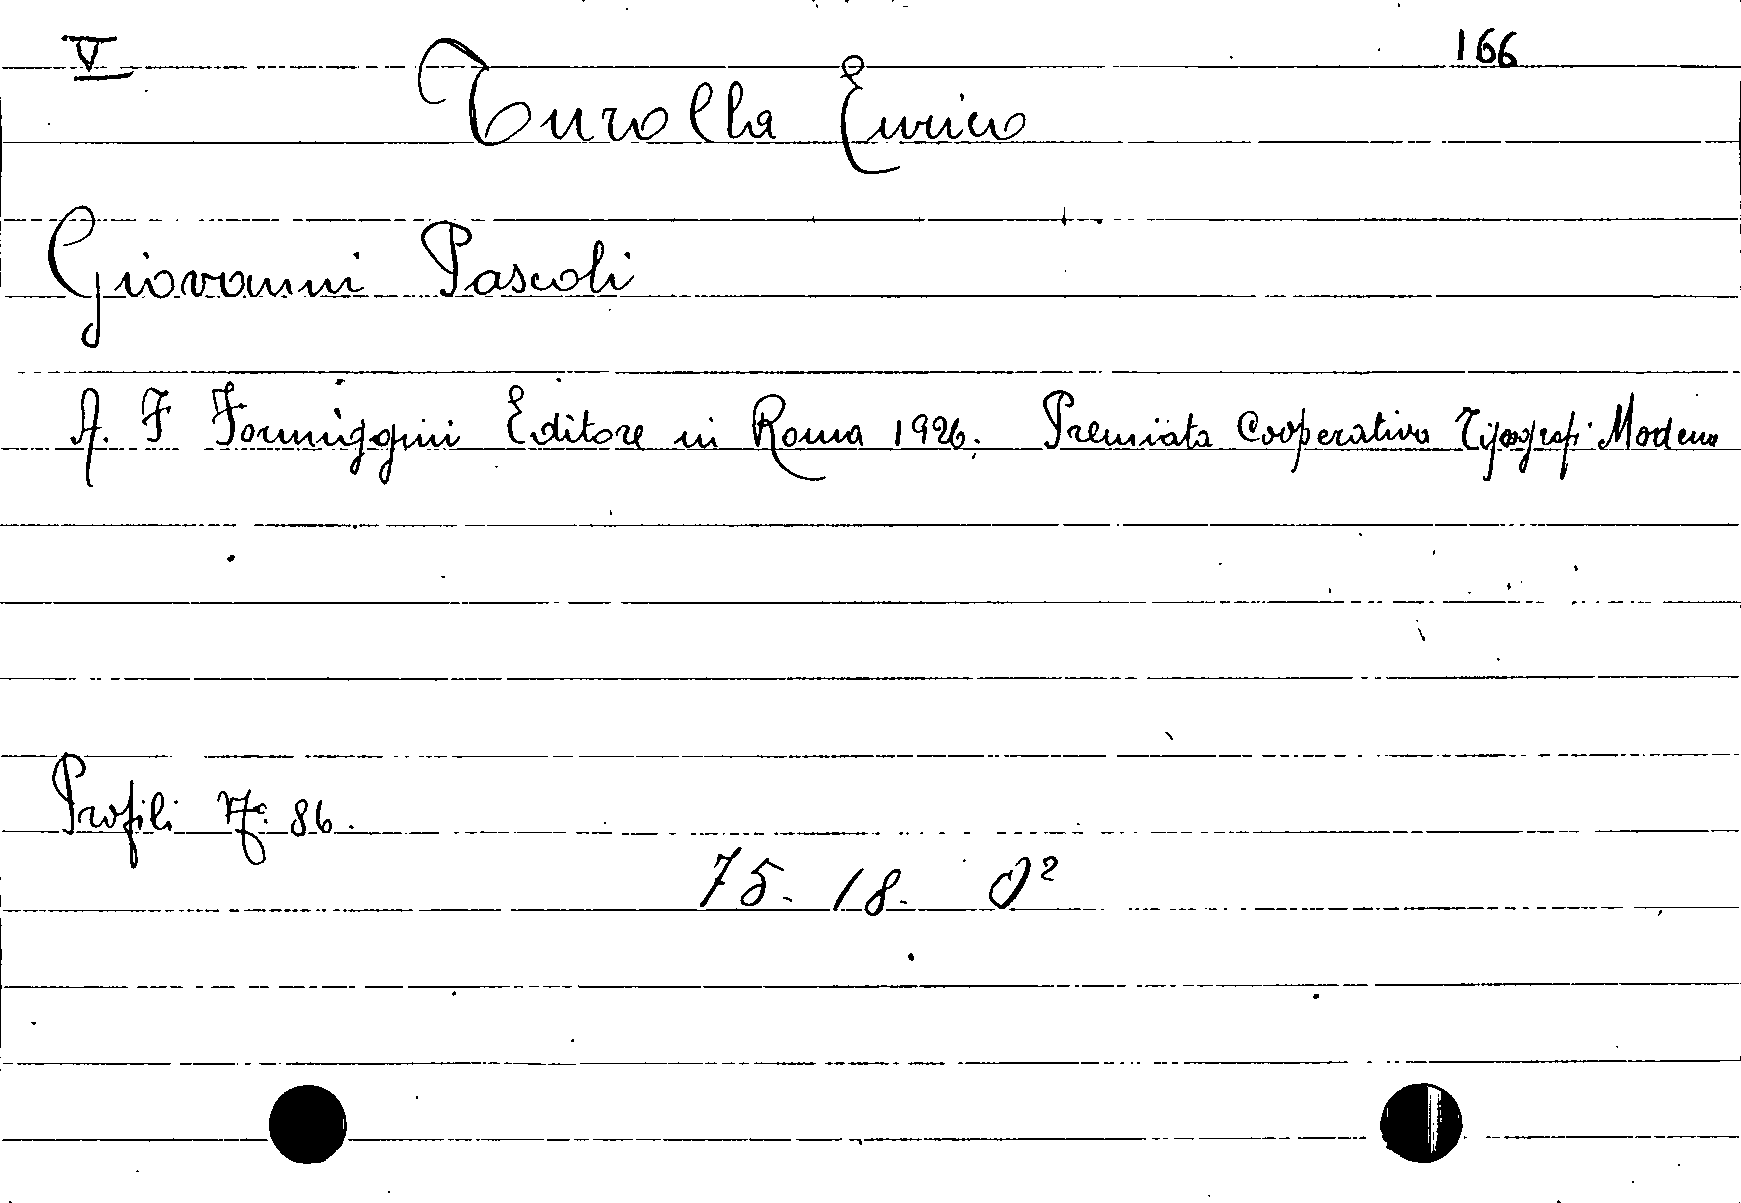 V 166
Turolla Enrico
Giovanni Pascoli
A. F Formiggini Editore in Roma 1926. Premiata Cooperativa Tipografi Modena
Profili No. 86.
75. 18.